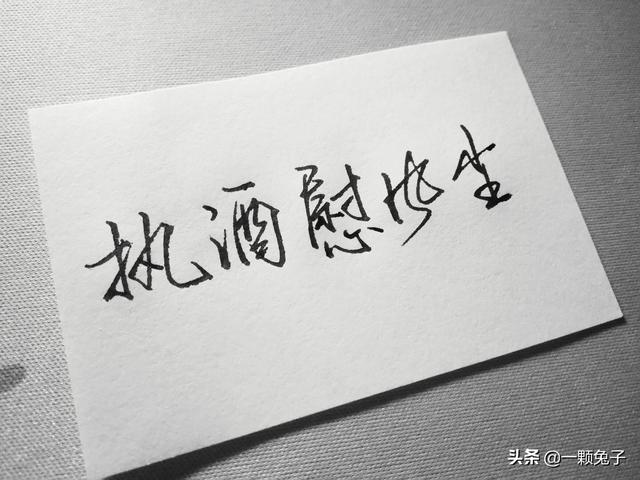 执酒慰风尘
头条 @一颗兔子